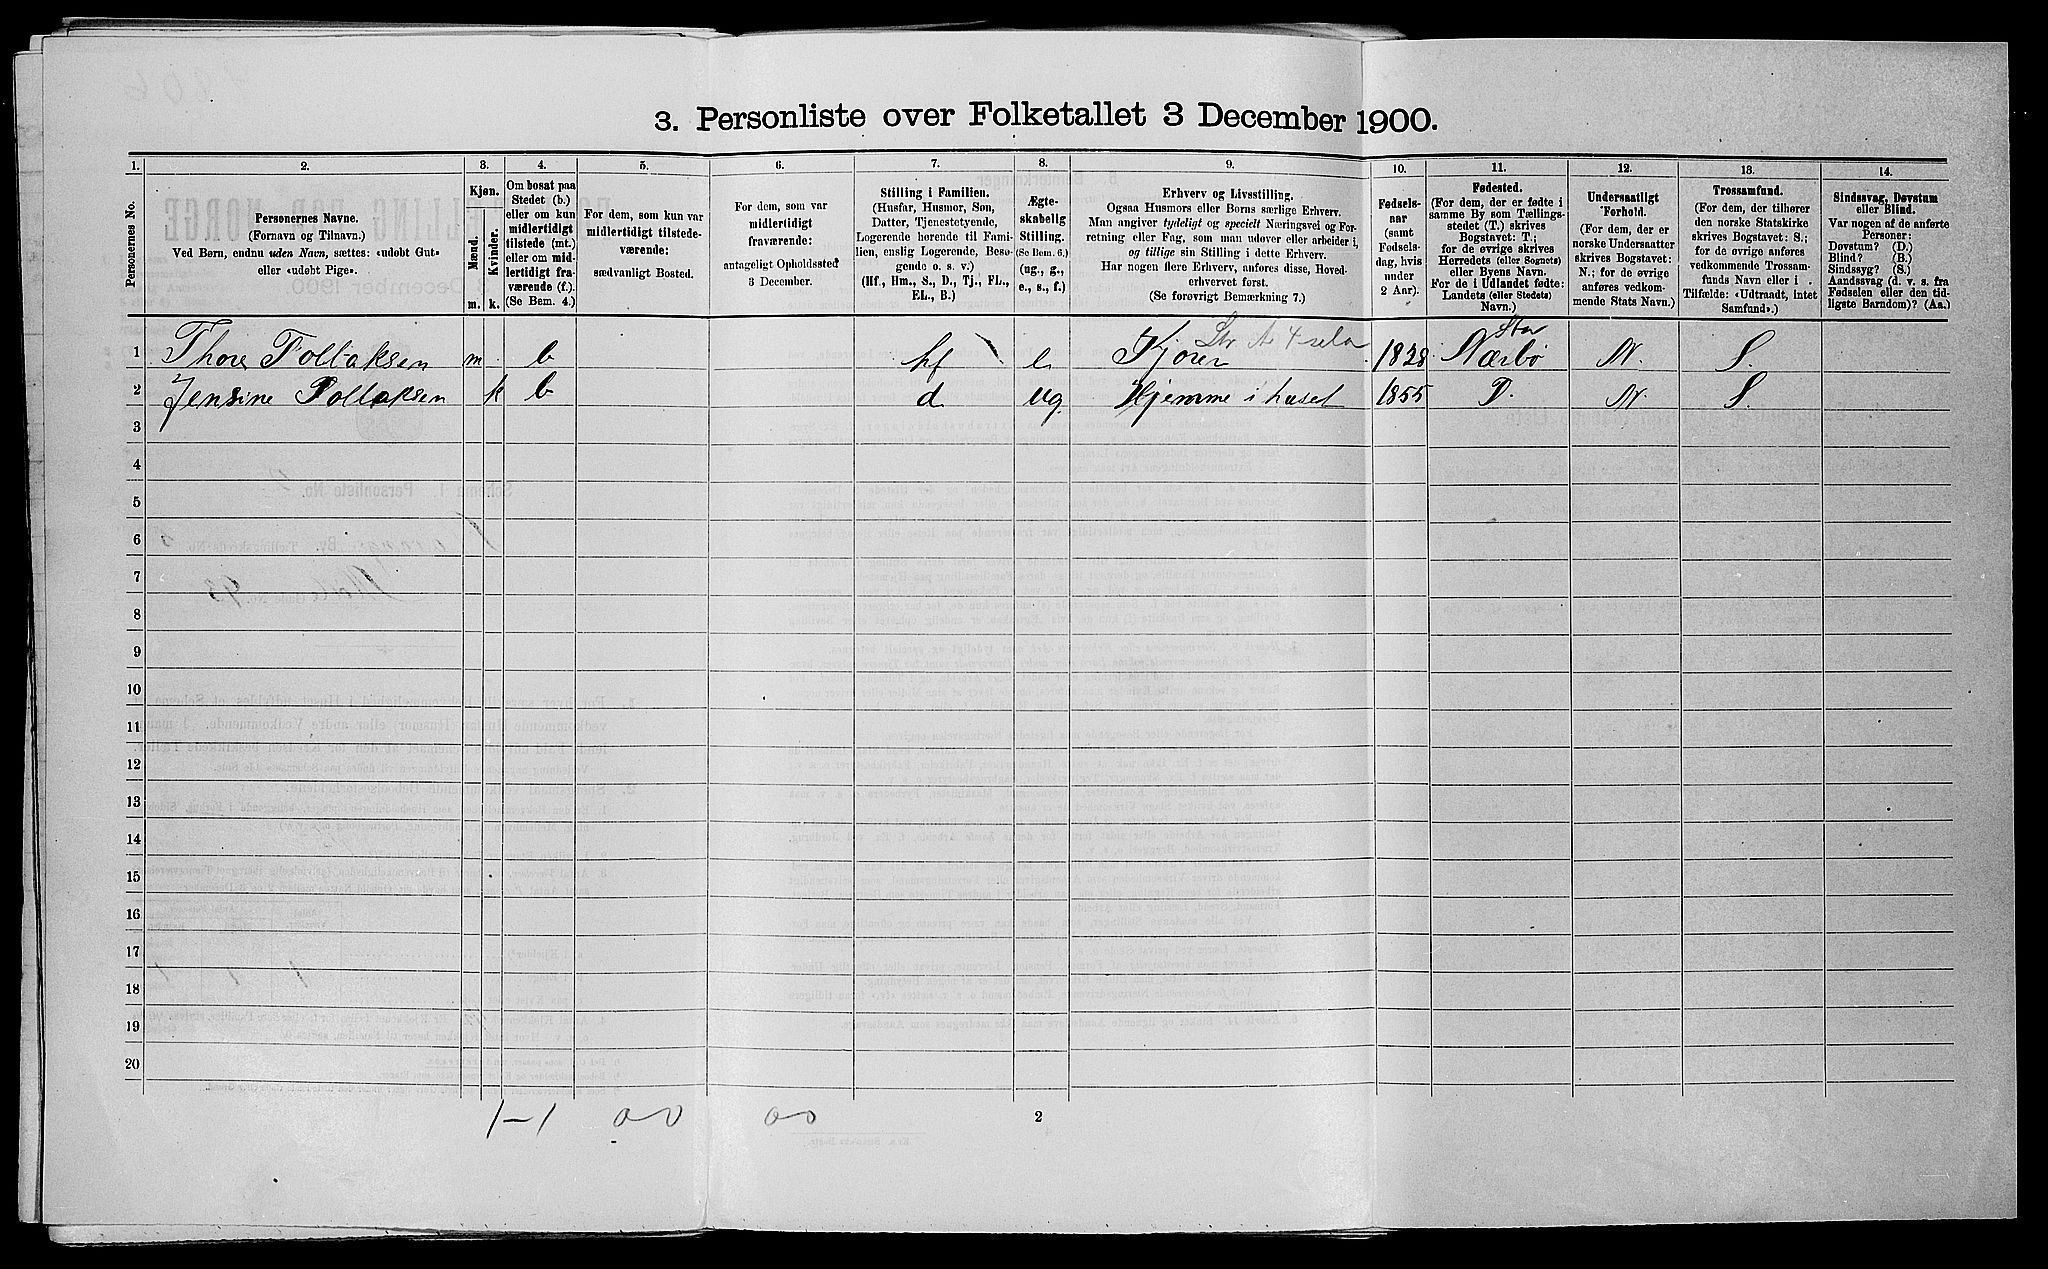 3. Personliste over Folketallet 3 December 1900.
1. 2. 3. 4. 5. 6. 7. 8. 9. 10. 11. 12. 13. 14.
Personernes No.
Personernes Navne.
(Fornavn og Tilnavn.)
Ved Børn, endnu uden Navn, sættes: «udøbt Gut»
eller «udøbt Pige».
Kjøn.
Mænd.
Kvinder.
m. k.
Om bosat paa
Stedet (b.)
eller om kun
midlertidigt
tilstede (mt.)
eller om mid-
lertidigt fra-
værende (f.).
(Se Bem. 4.)
For dem, som kun var
midlertidigt tilstede-
værende:
sædvanligt Bosted.
For dem, som var
midlertidigt
fraværende:
antageligt Opholdssted
3 December.
Stilling i Familien.
(Husfar, Husmor, Søn,
Datter, Tjenestetyende,
Logerende hørende til Fami-
lien, enslig Logerende, Besø-
gende o. s. v.)
(Hf., Hm., S., D., Tj., FL.,
EL., B.)
Ægte-
skabelig
Stilling.
(Se Bem. 6.)
(ug., g.,
e., s., f.)
Erhverv og Livsstilling.
Ogsaa Husmors eller Børns særlige Erhverv.
Man angiver tydeligt og specielt Næringsvei og For-
retning eller Fag, som man udøver eller arbeider i,
og tillige sin Stilling i dette Erhverv.
Har nogen flere Erhverv, anføres disse, Hoved-
erhvervet først.
(Se forøvrigt Bemærkning 7.)
Fødsels-
aar
(samt
Fødsels-
dag, hvis
under
2 Aar).
Fødested.
(For dem, der er fødte i
samme By som Tællings-
stedet (T.) skrives
Bogstavet: T.;
for de øvrige skrives
Herredets (eller Sognets)
eller Byens Navn.
For de i Udlandet fødte:
Landets (eller Stedets)
Navn.)
Undersaatligt
Forhold.
(For dem, der er
norske Undersaatter
skrives Bogstavet:
N.; for de øvrige
anføres vedkom-
mende Stats Navn.)
Trossamfund.
(For dem, der tilhører
den norske Statskirke
skrives Bogstav: S.;
for de øvrige anføres
vedkommende Trossam-
funds Navn eller i
Tilfælde: «Udtraadt, intet
Samfund».)
Sindssvag, Døvstum
eller Blind.
Var nogen af de anførte
Personer:
Døvstum? (D.)
Blind? (B.)
Sindssyg? (S.)
Aandssvag (d. v. s. fra
Fødselen eller den tid-
ligste Barndom)? (Aa.)
1 Thore Tollaksen m. b hf e Kjører 1828 Nærbø N. S.
2 Jensine Tollaksen k b d ug Hjemme i huset 1855 T. N. S.
3
4
5
6
7
8
9
10
11
12
13
14
15
16
17
18
19
20
1-1 0-0 0-0 2